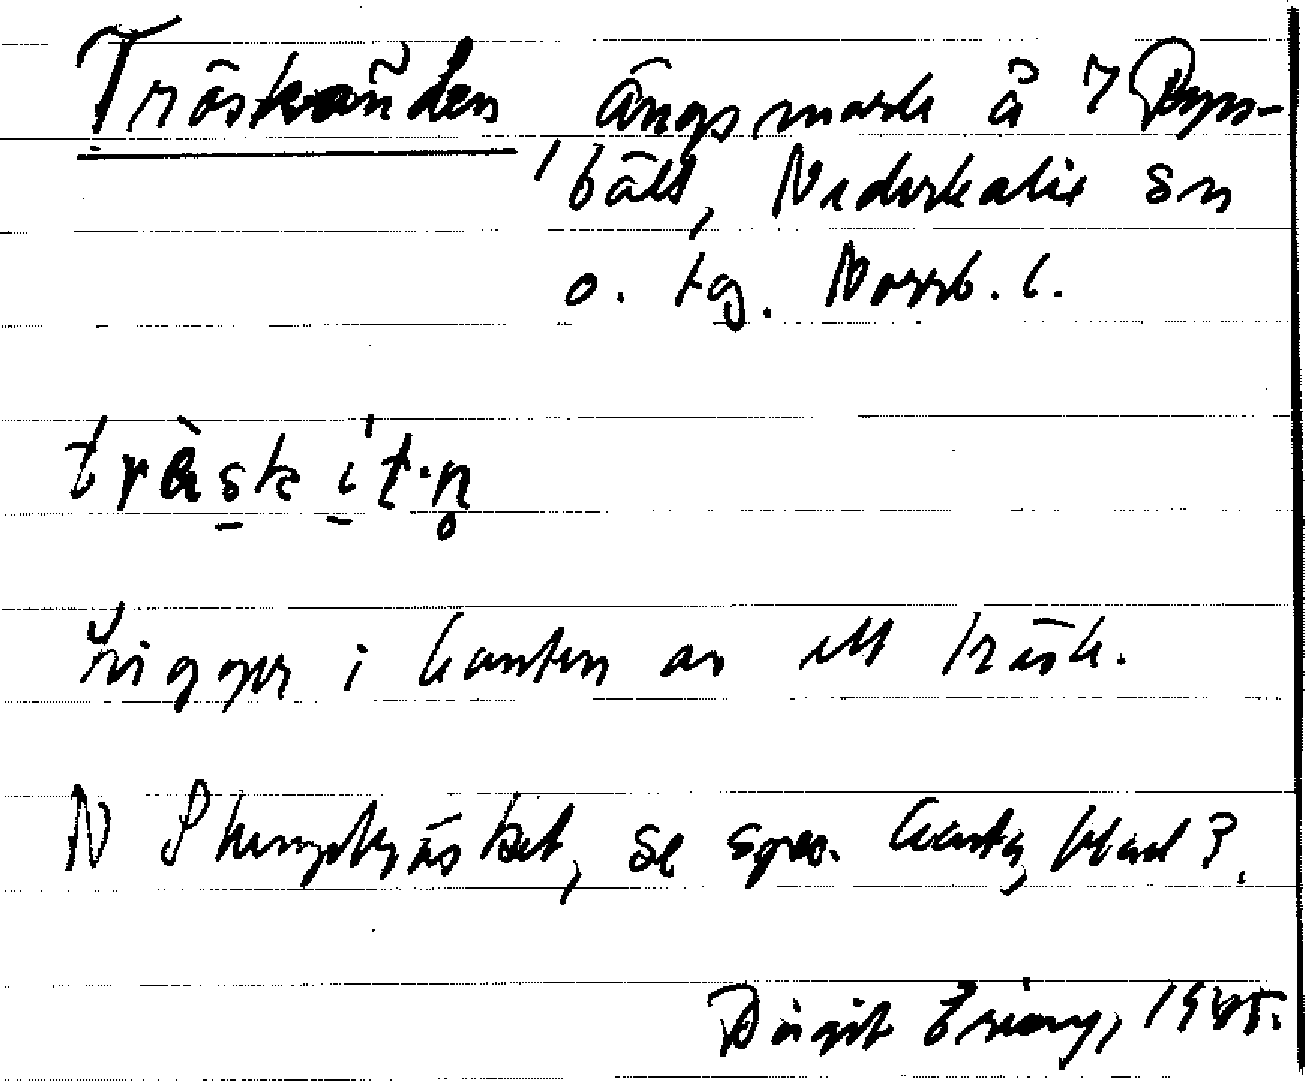 Träskänden, ängsmark å 7 Ryss-
bält, Nederkalix sn
o. tg. Norrb. l.
träsk it.n
Ligger i kanten av ett träsk.
N Skamträsket, se spec. karta, blad 3.
Birgit Falck, 1945.